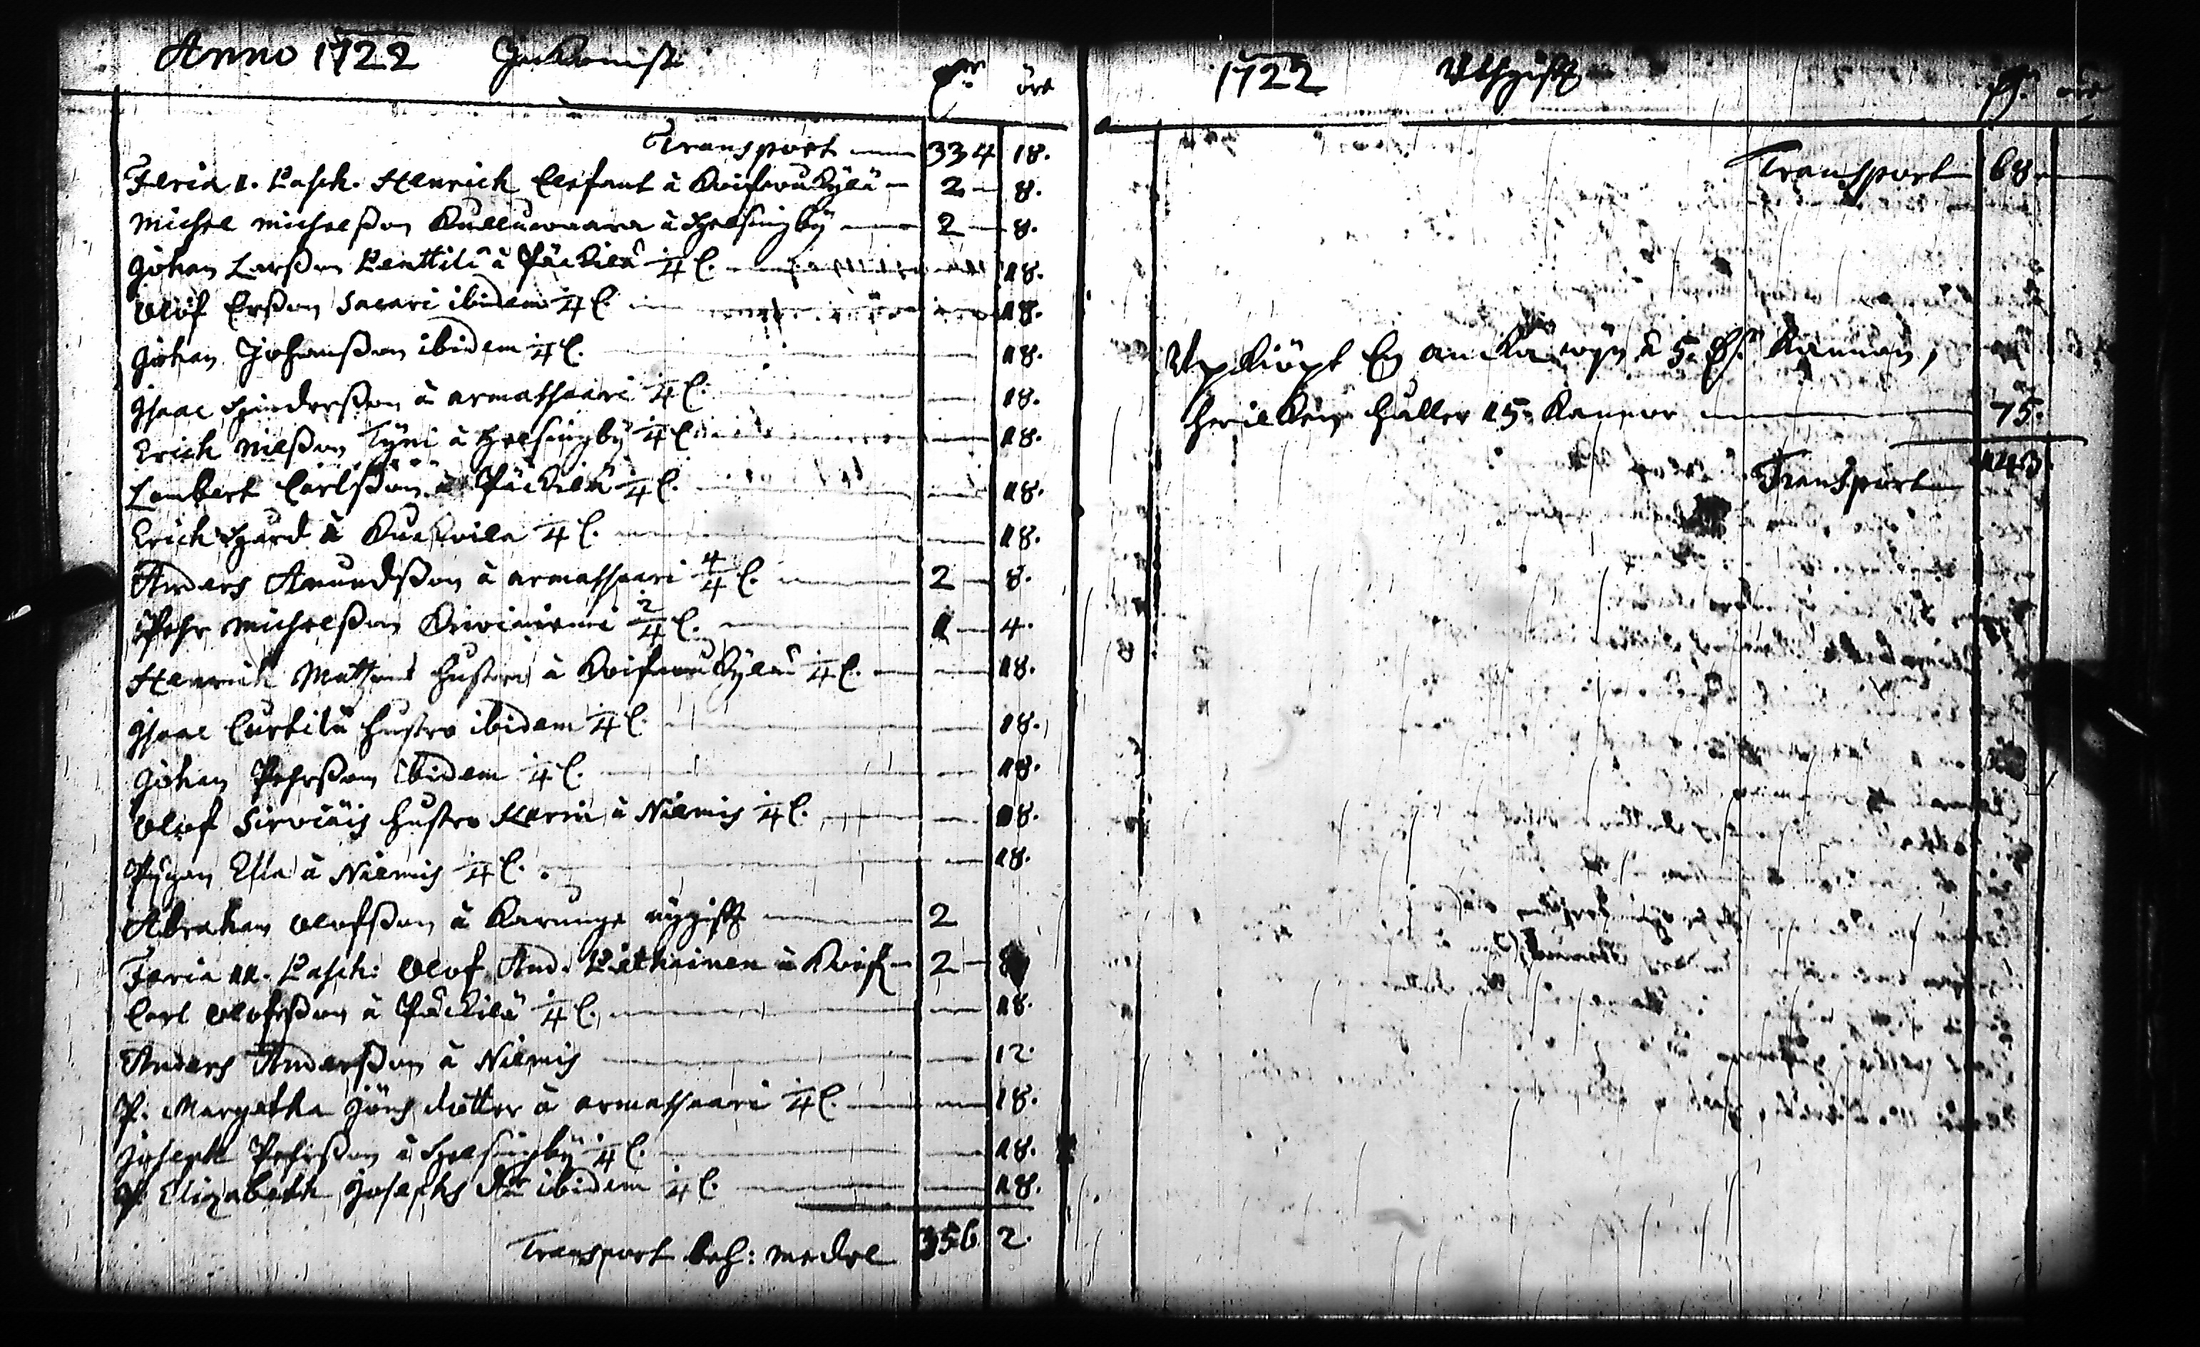 Anno 1722 Inkomst
öre
Transport 334 18.
Feria 2. Pasch. Henrich Clefant à Koifwukylä 2 8.
Michel Michelsson Kulluwaara à Helsingby 2 8.
Johan Larsson Penttilä à Päckilä 1/4 l. 18.
Olof Ersson Sacari ibidem 1/4 l. 18.
Johan Johansson ibidem 1/4 l. 18.
Isaac Hindersson à armassaari 1/4 l. 18.
Erich Nilsson Tyni à Helsingby 1/4 l. 18.
Lambert Carlsson à Päckilä 1/4 l. 18.
Erich Hård à 1/4 l. 18.
Anders Amundsson à armassaari 4/4 l. 2 8.
Pehr Michelsson Kiviniemi 2/4 l. 1 4.
Henrich Matzons hustru à Koifwukylä 1/4 l. 18.
Isaac Curtilä hustro ibidem 1/4 l. 18.
Johan Pehrsson ibidem 1/4 l. 18.
Olof Sirviäis hustro Karin à Niemis 1/4 l. 18.
Pigan Ella à Niemis 1/4 l. 18.
Abraham Olofsson à Karunge uggifft 2
Feria Pasch: Olof And. à Koif 2 8
Carl Olofsson à Päckilä 1/4 l. 18.
Anders Andersson à Niemis 12.
P. Margetha Jöns dotter à armassaari 1/4 l. 18.
Joseph Pehrsson à Helsingby 1/4 l. 18.
P. Elizabeth Josephs ibidem 1/4 l. 18.
Transport beh: medel 356 2.
1722 Uthgifft
öre
Transport 68.
Upkiöpt En anckar wyn à 5. Kannan,
hvilken håller 15. Kannor 75.
Transport 143.